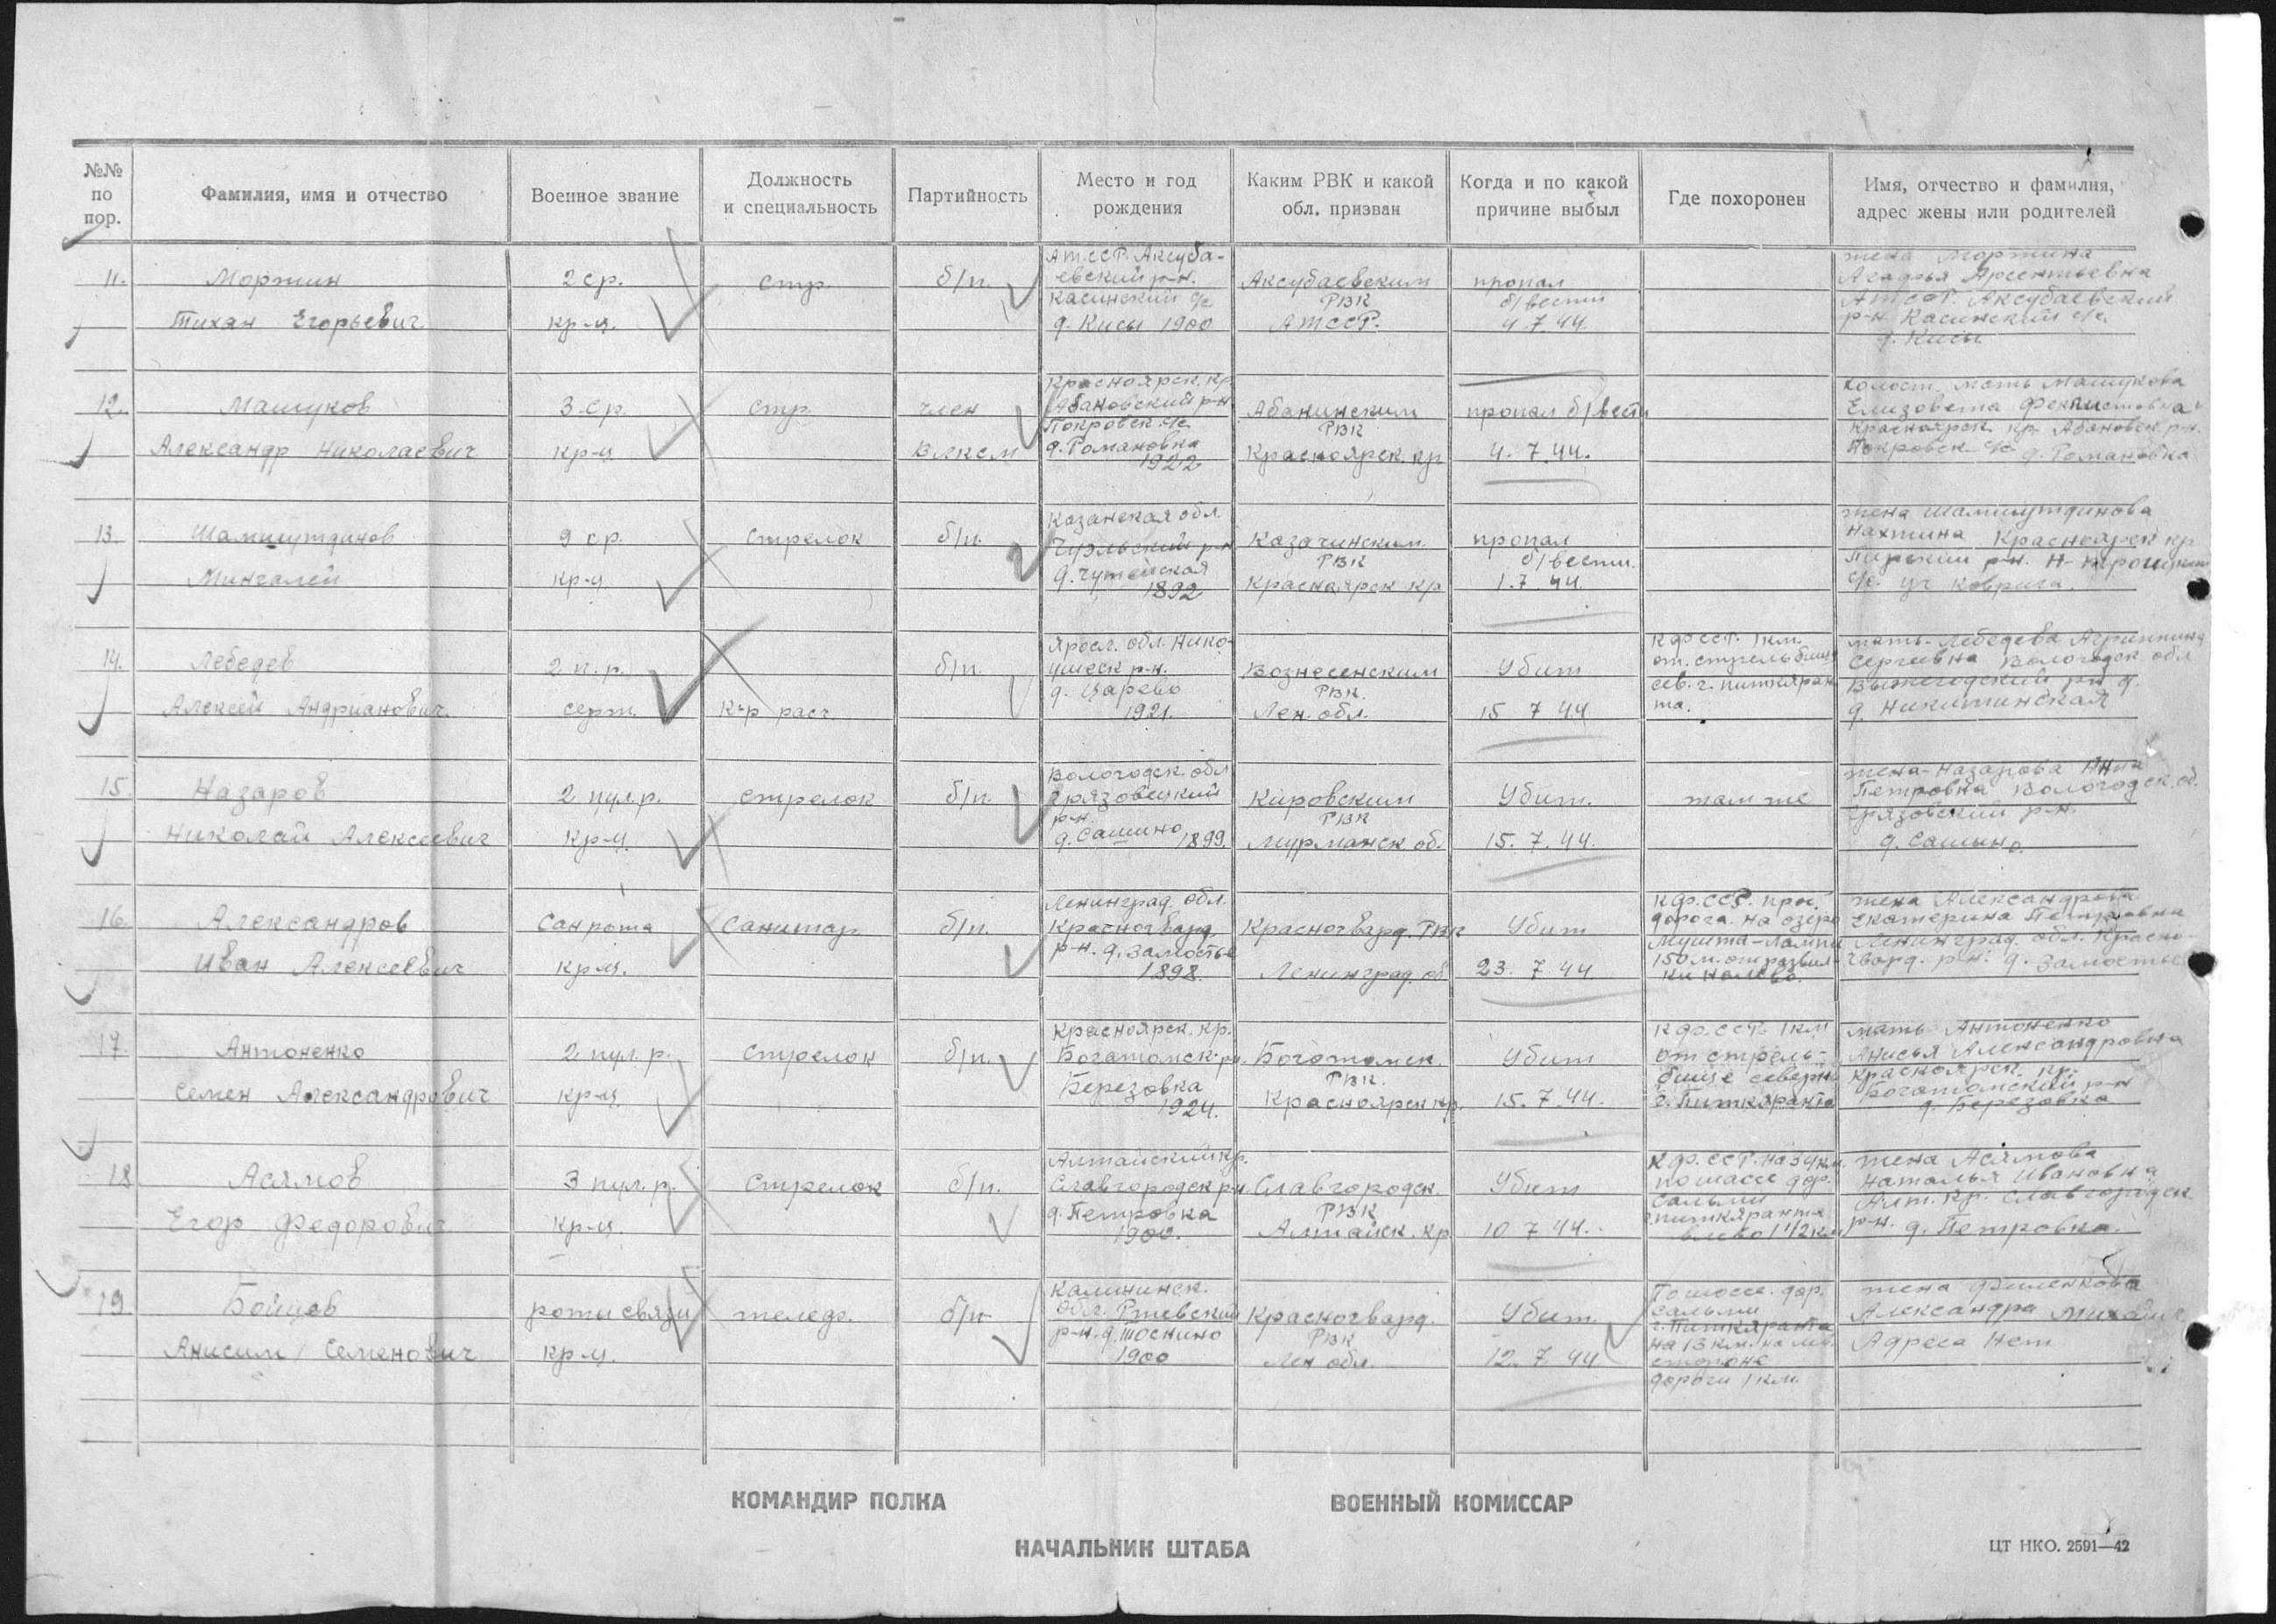 №№ по пор.
Фамилия, имя и отчество
Военное звание
Должность и специальность
Партийность
Место и год рождения
Каким РВК и какой обл. призван
Когда и по какой причине выбыл
Где похоронен
Имя, отчество и фамилия, адрес жены или родителей
11.
Моржин
Тихан Егорьевич
2 ср.
кр-ц.
стр.
б/п.
АТССР. Аксуба-
евский р-н.
Касинский с/с
д. Кисы 1900
Аксубаевским
РВК
АТССР.
пропал
б/вести
4.7.44.
жена Моржина
Агафья Арсентьевна
АТССР. Аксубаевский
р-н Касинский с/с.
д. Кисы
12.
Машуков
Александр Николаевич
3. ср.
кр-ц
стр.
член
ВЛКСМ
Красноярск. кр.
Абановский р-н
Покровск. с/с
д. Романовка
1922
Абанинским
РВК
Красноярск. кр
пропал б/вести
4. 7. 44.
холост. мать Машукова
Елизовета
Красноярск. кр. Абановск. р-н.
Покровск. с/с д. Романовка
13.
Шамшутдинов
Мингалей
9 ср.
кр-ц
Стрелок
б/п.
Казанская обл.
1892
Казачинским.
РВК
Красноярск кр
пропал
б/вести.
1.7.44.
жена Шамшутдинова
Нахтина Красноярск кр
14.
Лебедев
Алексей Андрианович.
2 п. р.
серж.
к-р расч.
б/п.
Яросл. обл.
р-н.
д. Царево
1921.
Вознесенским
РВК.
Лен. обл.
Убит
15 7 44
КФССР. 1 км.
от. стрельбища
сев. г. питкяран
та.
мать- Лебедева Агриппина
Сергеевна Вологодск обл
д. Никитинская
15.
Назаров
Николай Алексеевич
2 пул. р.
кр-ц.
стрелок
б/п.
Вологодск. обл
Грязовецкий
р-н.
д. Сашино 1899.
Кировским
РВК
Мурманск. об.
Убит.
15. 7. 44.
там же
жена-Назарова Анна
Петровна Вологодск. об.
Грязовский р-н.
д. Сашино.
16.
Александров
Иван Алексеевич
Санрота
кр-ц.
Санитар
б/п.
Ленинград. обл.
Красногвард.
р-н. д. Замостье
1898.
Красногвард. РВК
Ленинград. об.
Убит
23. 7 44
КФ.ССР.
дорога. на озеро
150 м. от развил-
ки налево.
жена Александрова
Екатерина Петровна
Ленинград. обл. Красно-
гвард. р-н. д. Замостье
17.
Антоненко
Семен Александрович
2 пул. р.
кр-ц.
стрелок
б/п.
Красноярск. кр.
Боготомск. р-н.
Березовка
1924.
Боготомск.
РВК.
Красноярск кр.
Убит
15. 7. 44.
КФ.ССР 1 км
от стрель-
бище северн.
г. Питкяранта
мать Антоненко
Анисья Александровна
Красноярск. кр.
Боготомский р-н
д. Березовка
18
Асямов
Егор Федорович
3 пул. р.
кр-ц.
Стрелок
б/п.
Алтайский кр.
Славгородск р-н.
д. Петровка
1900.
Славгородск.
РВК
Алтайск. кр
Убит
10 7 44.
КФ.ССР. на 34 км.
по шоссе дор.
Сальми
г. питкяранта
влево 1 1/2 км
жена Асямова
Наталья Ивановна
Алт. кр. Славгородск
р-н. д. Петровка.
19
Бойцов
Анисим Семенович
роты связи
кр-ц.
телеф.
б/п
Калининск.
обл. Ржевский
р-н. д. Тоскино
1900
Красногвард.
РВК
Лен обл.
Убит.
12. 7 44.
По шоссе. дор.
Сальми
г. Питкяранта
на 13 км. на лев.
стороне
дороги 1 км.
жена Филенкова
Александра
Адреса Нет
КОМАНДИР ПОЛКА
ВОЕННЫЙ КОМИССАР
НАЧАЛЬНИК ШТАБА
ЦТ НКО. 2591—42